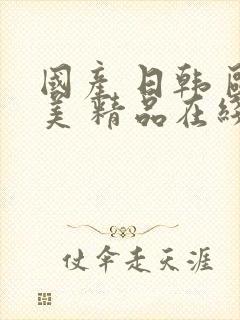 國產日韓
美精品在
仗伞走天涯